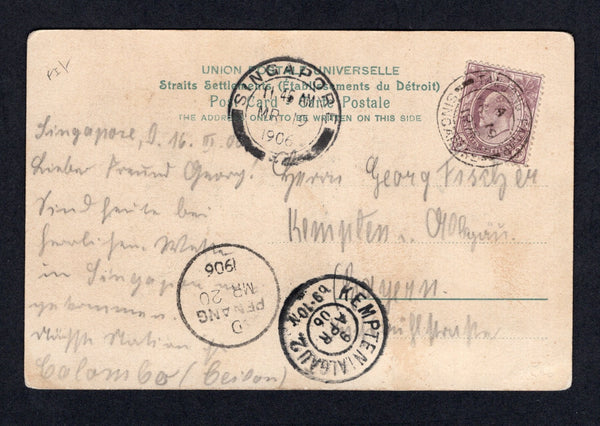 PIV
UNION POSTALE UNIVERSELLE
Straits Settlements (Établissements du Détroit)
Post Card Carte Postale
THE ADDRESS ONLY TO BE WRITTEN ON THIS SIDE
SINGAPORE
11.45 AM
MR 19
1906
Singapore, d. 16. III. 06
Lieber Freund Georg.
Sind heute bei
herrlichem Wetter
in Singapore
gekommen.
nächste Station
Colombo (Ceilon)
Herrn Georg Fischer
Kempten i. Allgäu.
Bayern.
D
PENANG
MR 20
1906
KEMPTEN (ALGÄU) 2
9 APR 06